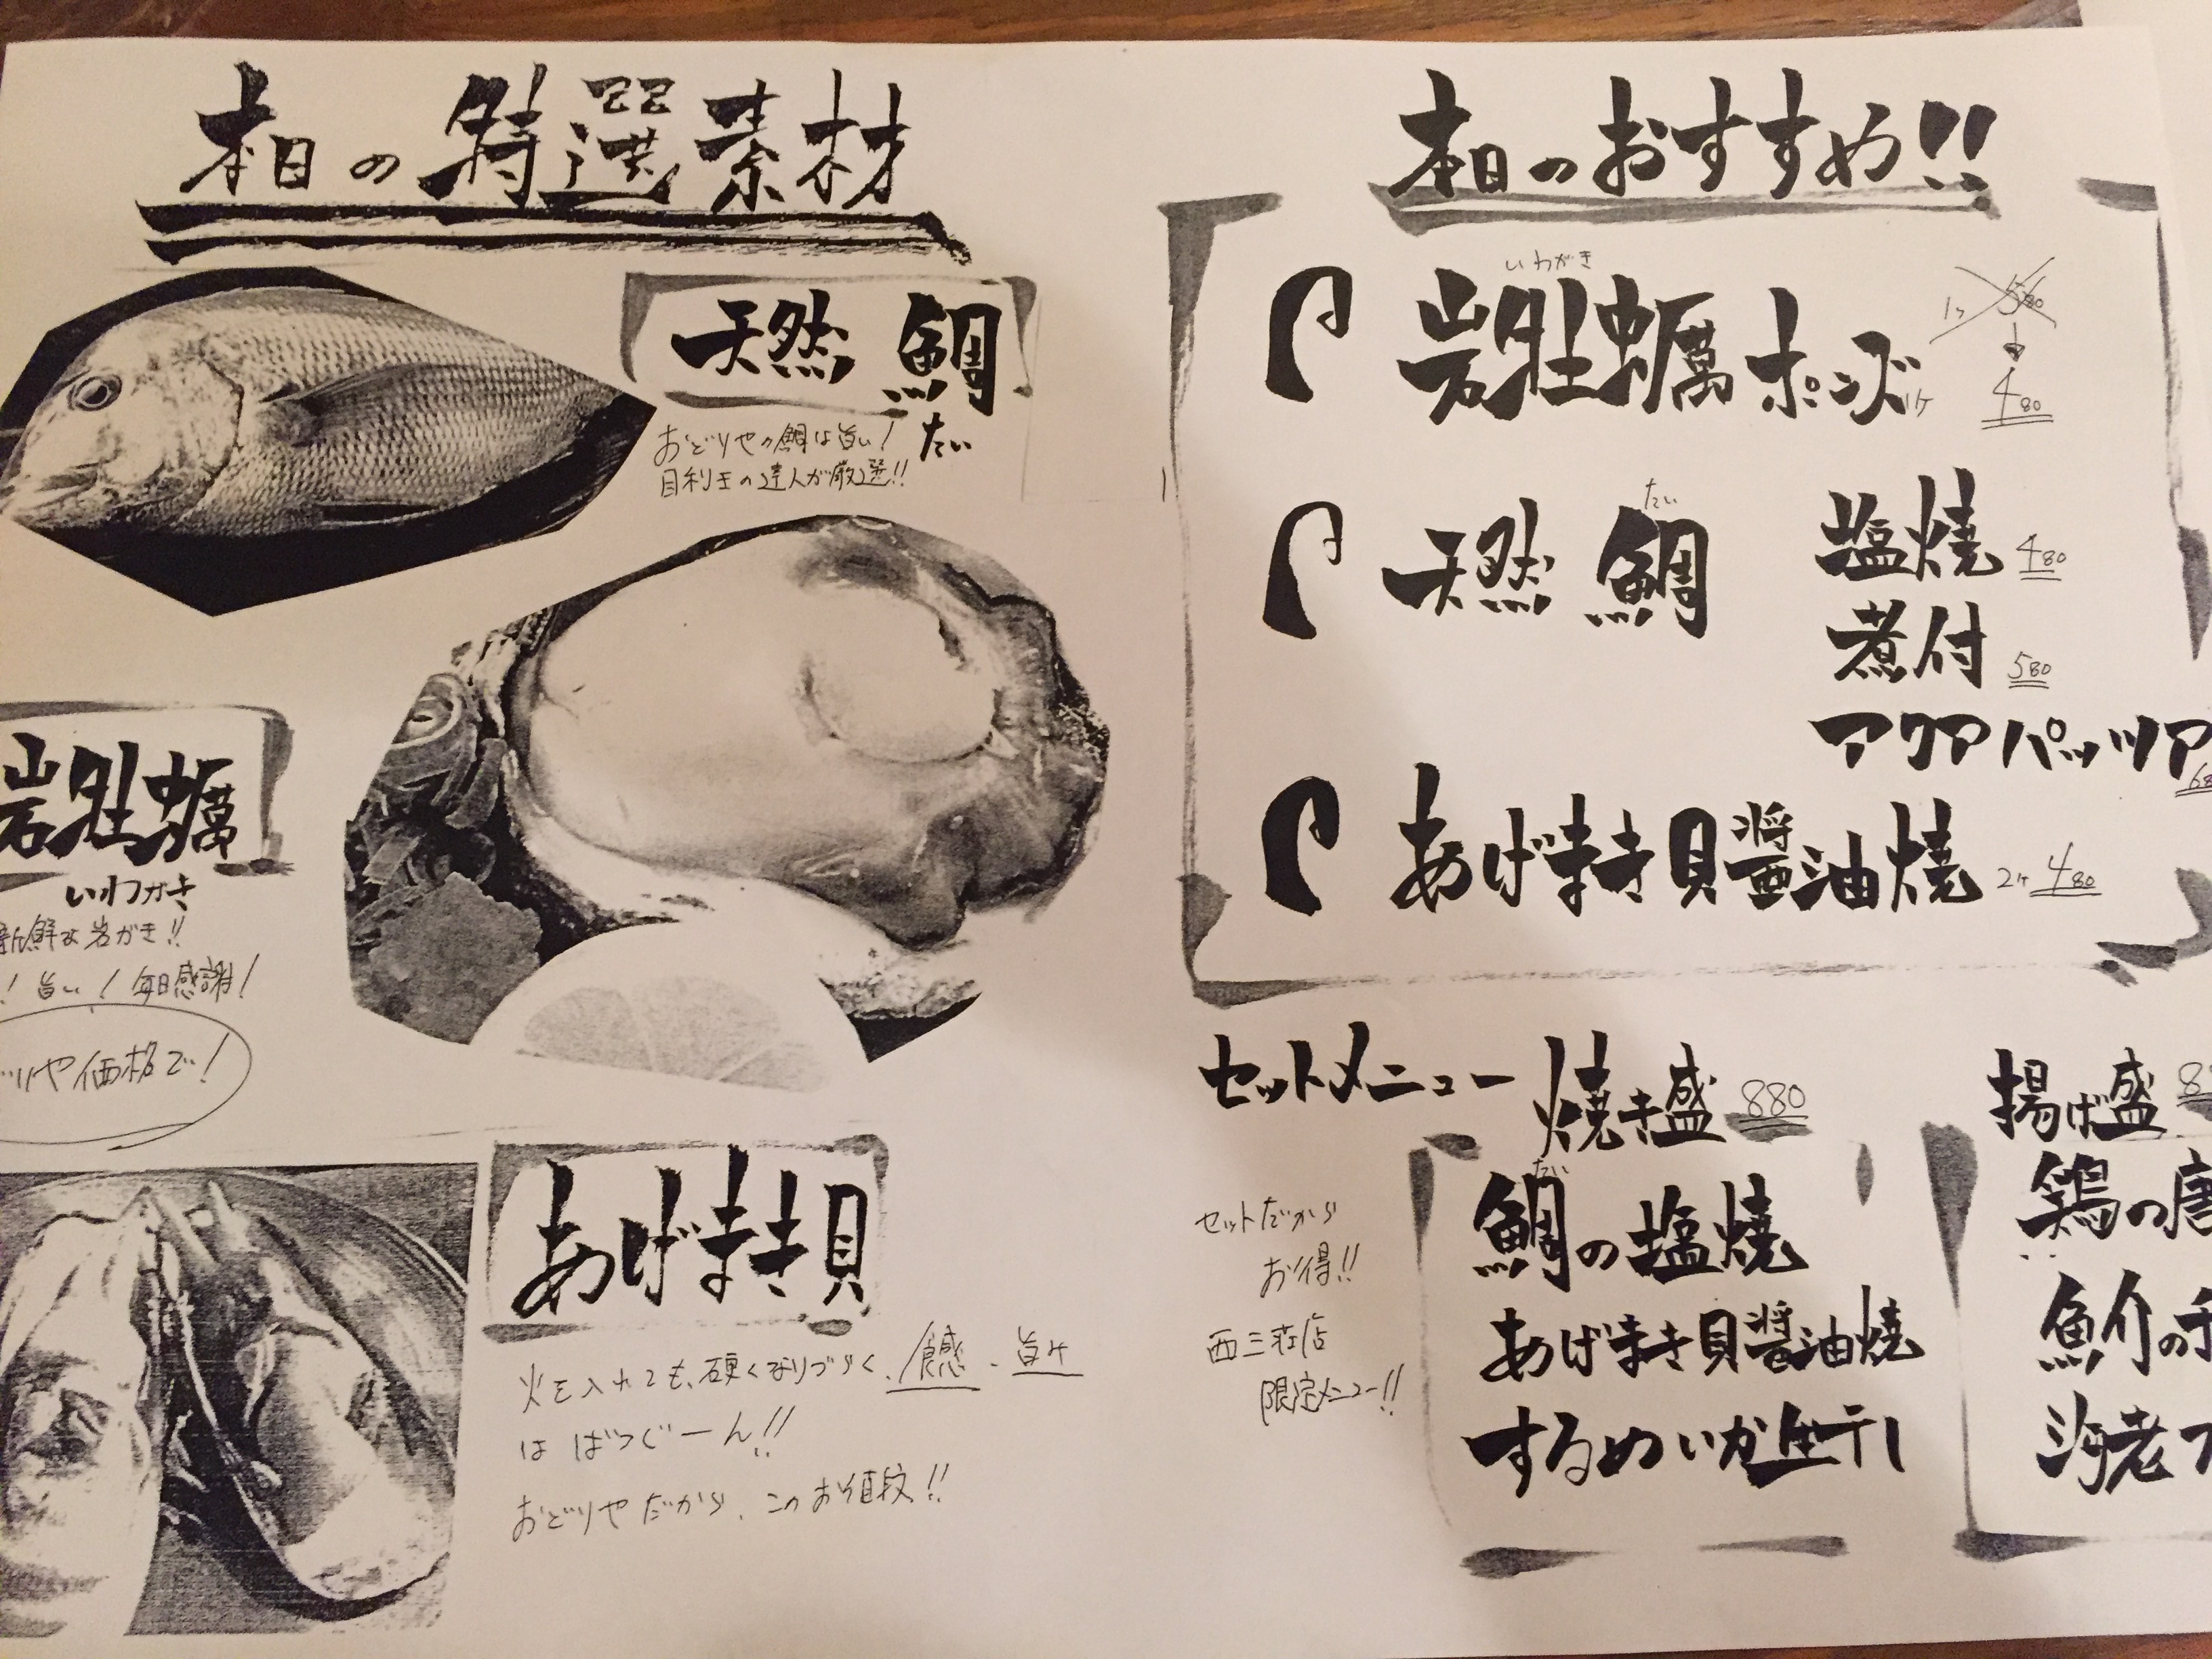 本日の特選素材
天然 鯛
たい
おどりやの鯛は旨い!
目利王の達人が厳選!!
岩牡蠣
いわがき
新鮮な岩がき!!
!旨い!毎日感謝!
りや価格で!
あげまき貝
火を入れても、硬くなりづらく、食感、旨み
はばつぐーん!!
おどりやだから、このお値段!!
本日のおすすめ!!
いわがき
岩牡蠣ポンズ 1ヶ
1ヶ 580
480
たい
天然 鯛
塩焼 480
煮付 580
アクアパッツア
あげまき貝醤油焼 2ヶ 480
セットメニュー
焼き盛 880
セットだから
お得!!
西三荘店
限定メニュー!!
たい
鯛の塩焼
あげまき貝醤油焼
するめいか生干し
揚げ盛
鶏の唐
海老